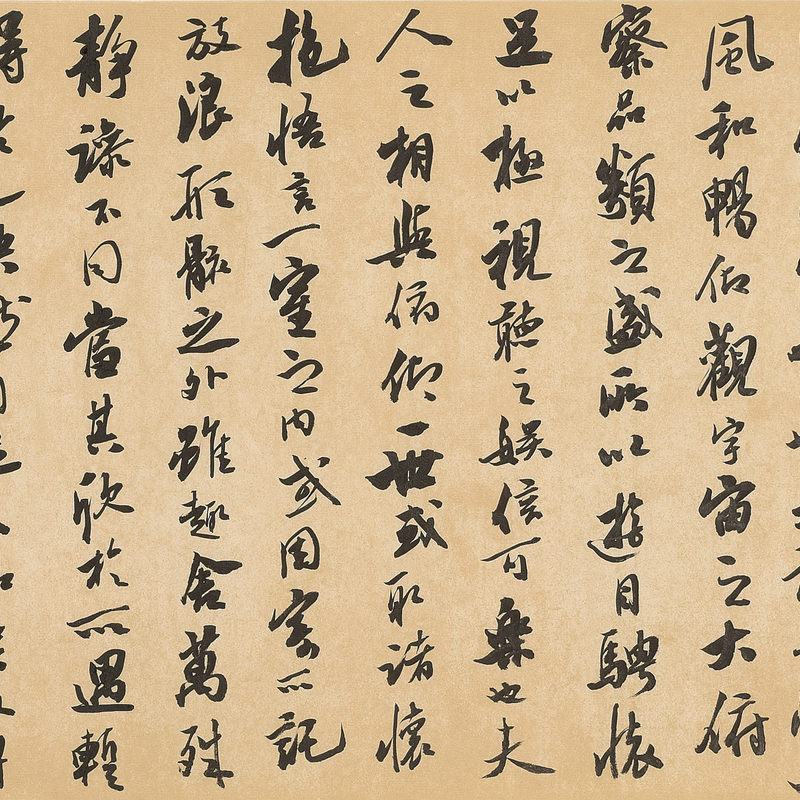 風和暢仰觀宇宙之大俯
察品類之盛所以遊目騁懷
足以極視聽之娛信可樂也夫
人之相與俯仰一世或取諸懷
抱悟言一室之內或因寄所託
放浪形骸之外雖趣舍萬殊
靜躁不同當其欣於所遇暫